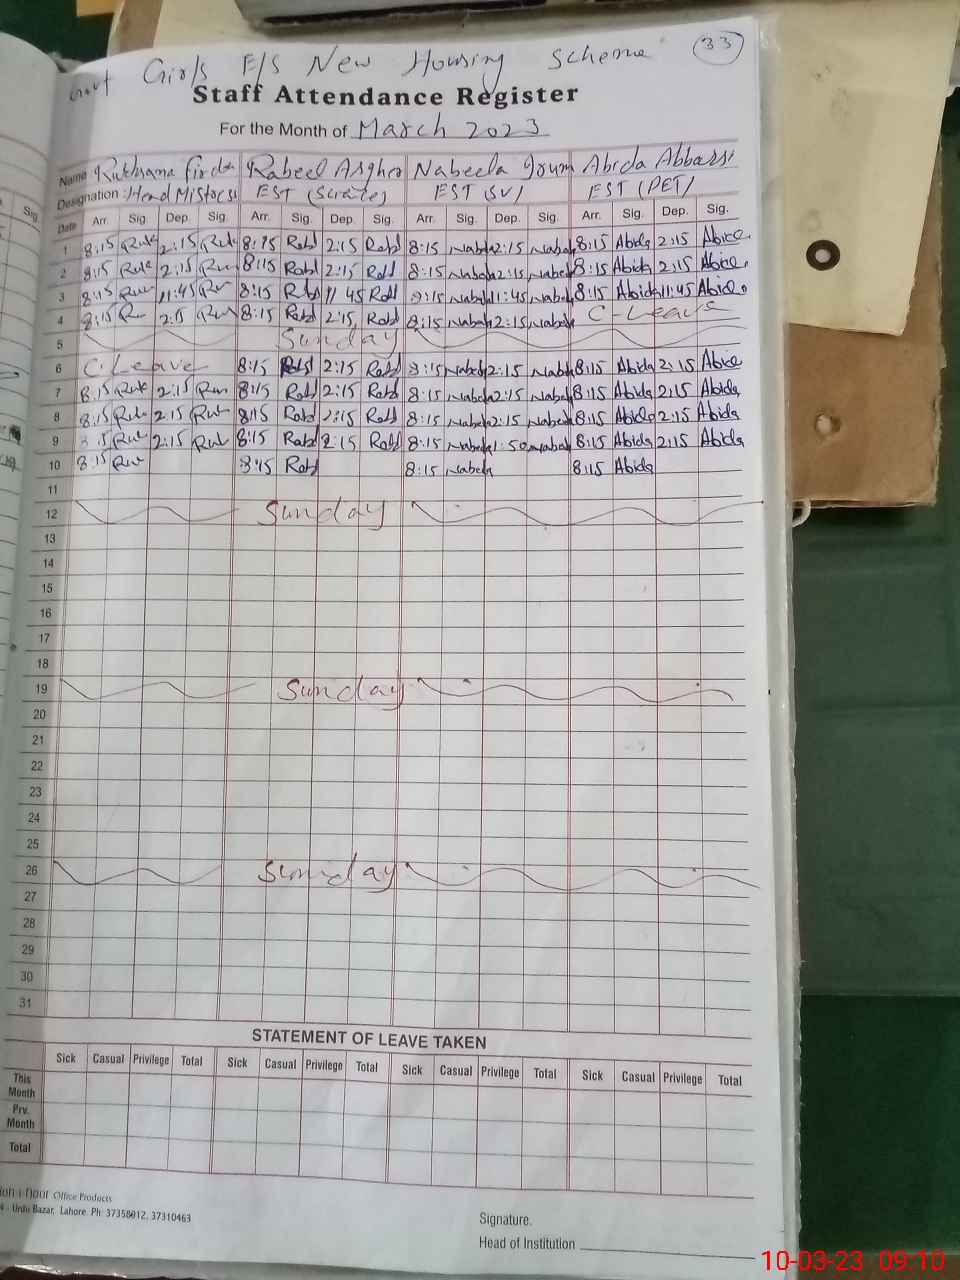 Govt Girls E/S New Housing Scheme 33
Staff Attendance Register
For the Month of March 2023
Name Rukhsana Firdo Rabeel Asghar Nabeela Irum Abida Abbassi
Designation : Head Mistress EST (Science) EST (SV) EST (PET)
Date Arr. Sig. Dep. Sig. Arr. Sig. Dep. Sig. Arr. Sig. Dep. Sig. Arr. Sig. Dep. Sig.
1 8:15 Ruk 2:15 Ruk 8:15 Rabl 2:15 Rabl 8:15 Nabela 2:15 Nabela 8:15 Abida 2:15 Abida
2 8:15 Ruk 2:15 8:15 Rabl 2:15 Rabl 8:15 Nabela 2:15 Nabela 8:15 Abida 2:15 Abida
3 8:15 11:45 8:15 Rabl 11:45 Rabl 8:15 Nabela 11:45 Nabela 8:15 Abida 11:45 Abida
4 8:15 2:15 8:15 Rabl 2:15 Rabl 8:15 Nabela 2:15 Nabela C-Leave
5 Sunday
6 C.Leave 8:15 Rabl 2:15 Rabl 8:15 Nabela 2:15 Nabela 8:15 Abida 2:15 Abida
7 8:15 Ruk 2:15 8:15 Rabl 2:15 Rabl 8:15 Nabela 2:15 Nabela 8:15 Abida 2:15 Abida
8 8:15 Ruk 2:15 Ruk 8:15 Rabl 2:15 Rabl 8:15 Nabela 2:15 Nabela 8:15 Abida 2:15 Abida
9 8:15 Ruk 2:15 Ruk 8:15 Rabl 2:15 Rabl 8:15 Nabela 1:50 Nabela 8:15 Abida 2:15 Abida
10 8:15 8:15 Rabl 8:15 Nabela 8:15 Abida
11
12 Sunday
13
14
15
16
17
18
19 Sunday
20
21
22
23
24
25
26 Sunday
27
28
29
30
31
STATEMENT OF LEAVE TAKEN
Sick Casual Privilege Total Sick Casual Privilege Total Sick Casual Privilege Total Sick Casual Privilege Total
This Month
Prv. Month
Total
Office Products
Urdu Bazar, Lahore. Ph: 37358012, 37310463
Signature.
Head of Institution
10-03-23 09:10